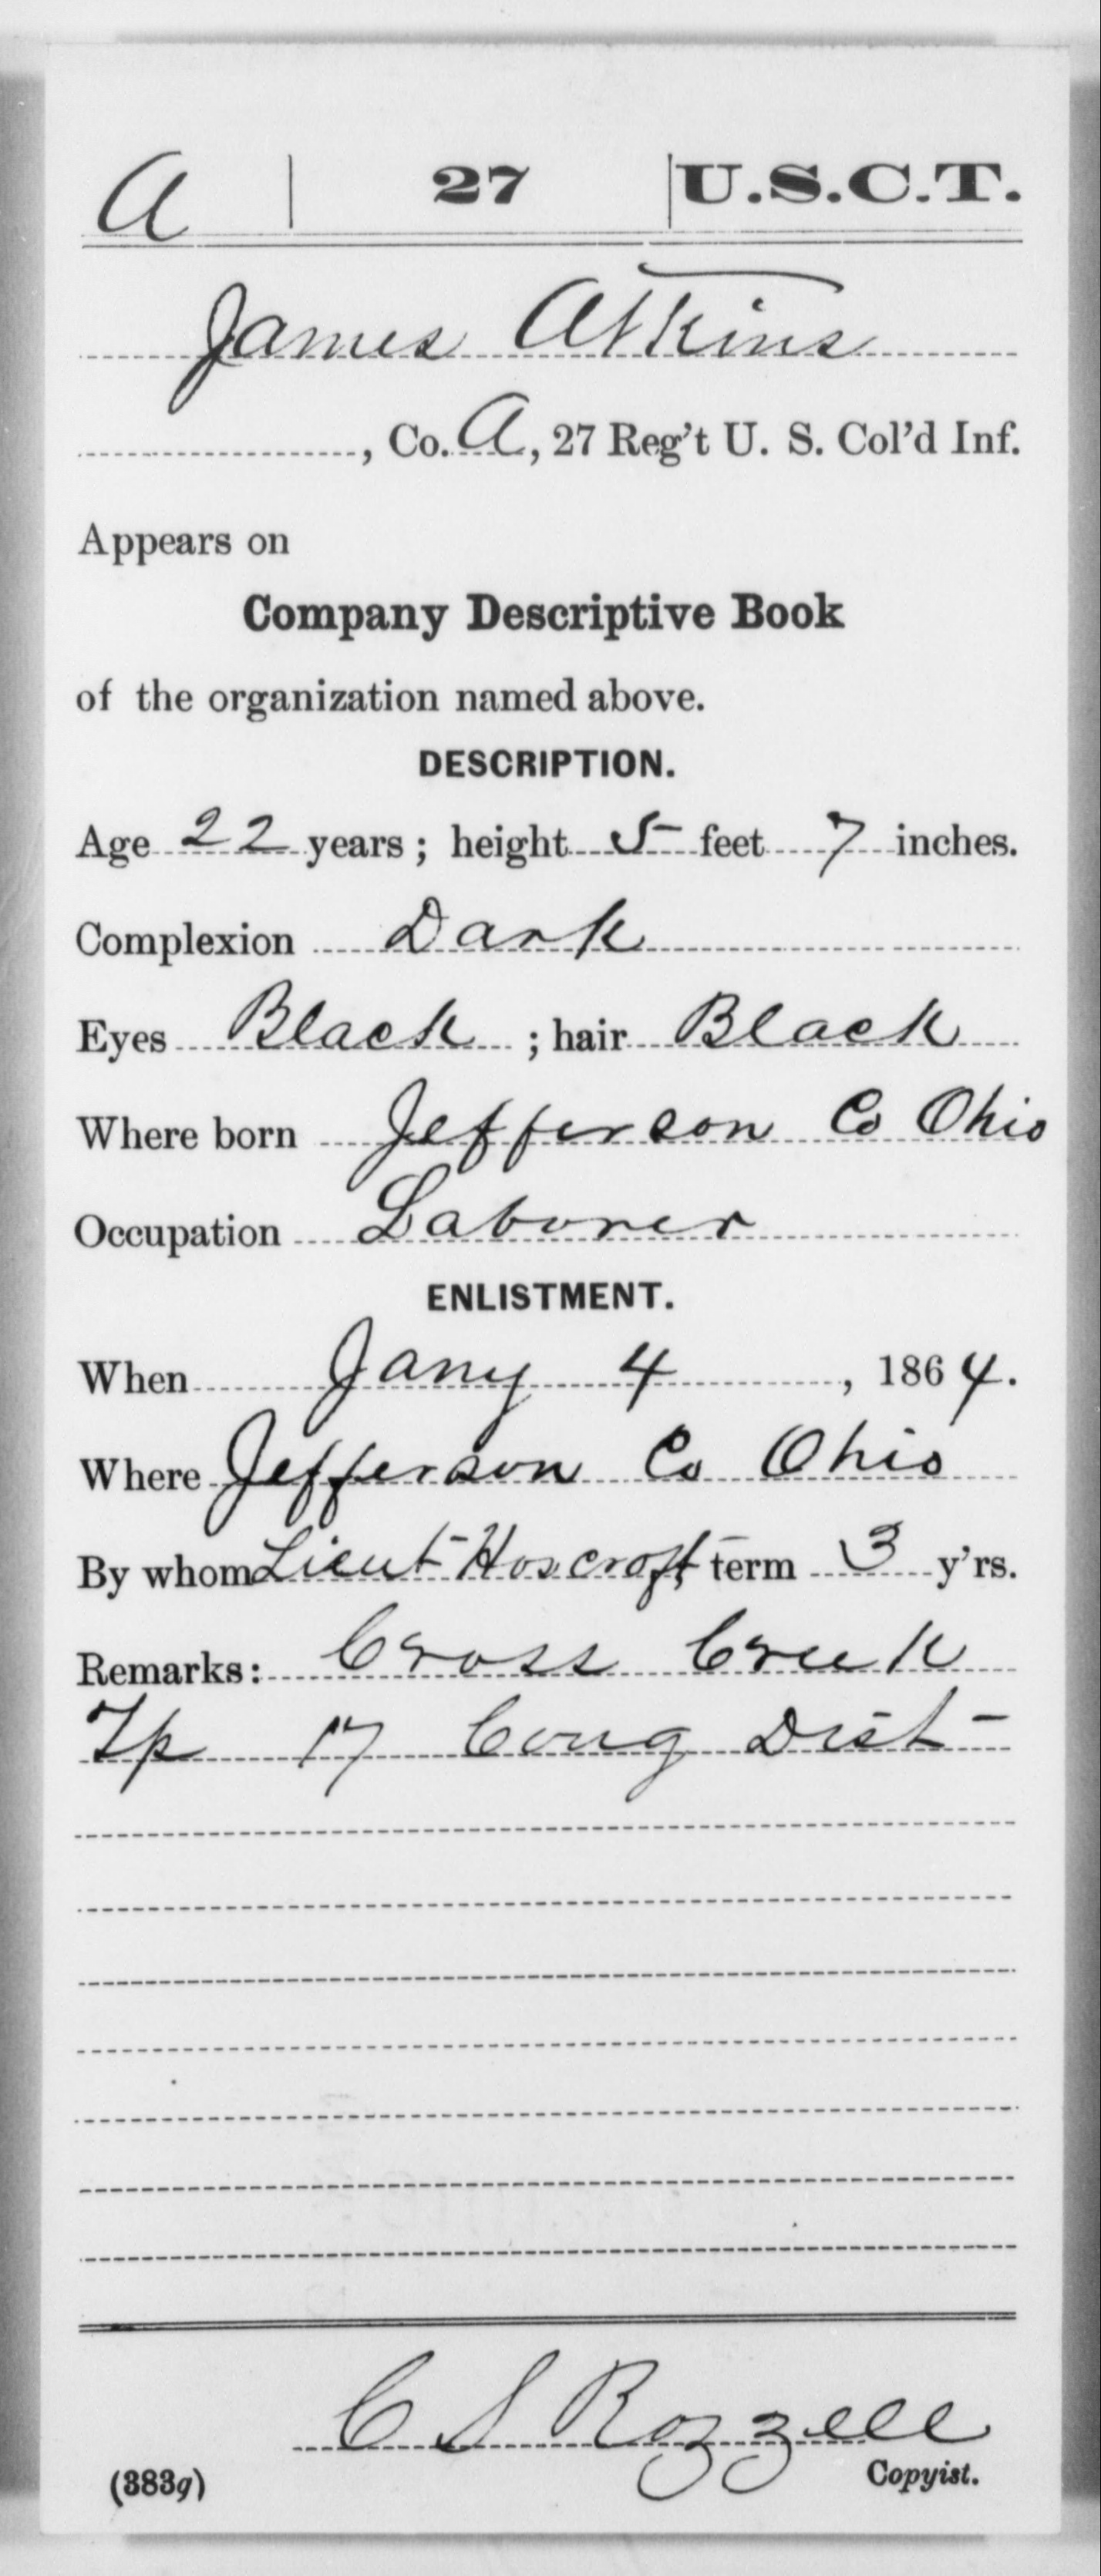 A | 27 | U.S.C.T.
James Atkins
, Co. A, 27 Reg't U. S. Col'd Inf.
Appears on
Company Descriptive Book
of the organization named above.
DESCRIPTION.
Age 22 years; height 5 feet 7 inches.
Complexion Dark
Eyes Black ; hair Black
Where born Jefferson Co Ohio
Occupation Laborer
ENLISTMENT.
When Jany 4, 1864.
Where Jefferson Co Ohio
By whom Lieut Hoscroft, term 3 y'rs.
Remarks: Cross Creek
Tp 17 Cong Dist
C S Rozzell
(383g) Copyist.